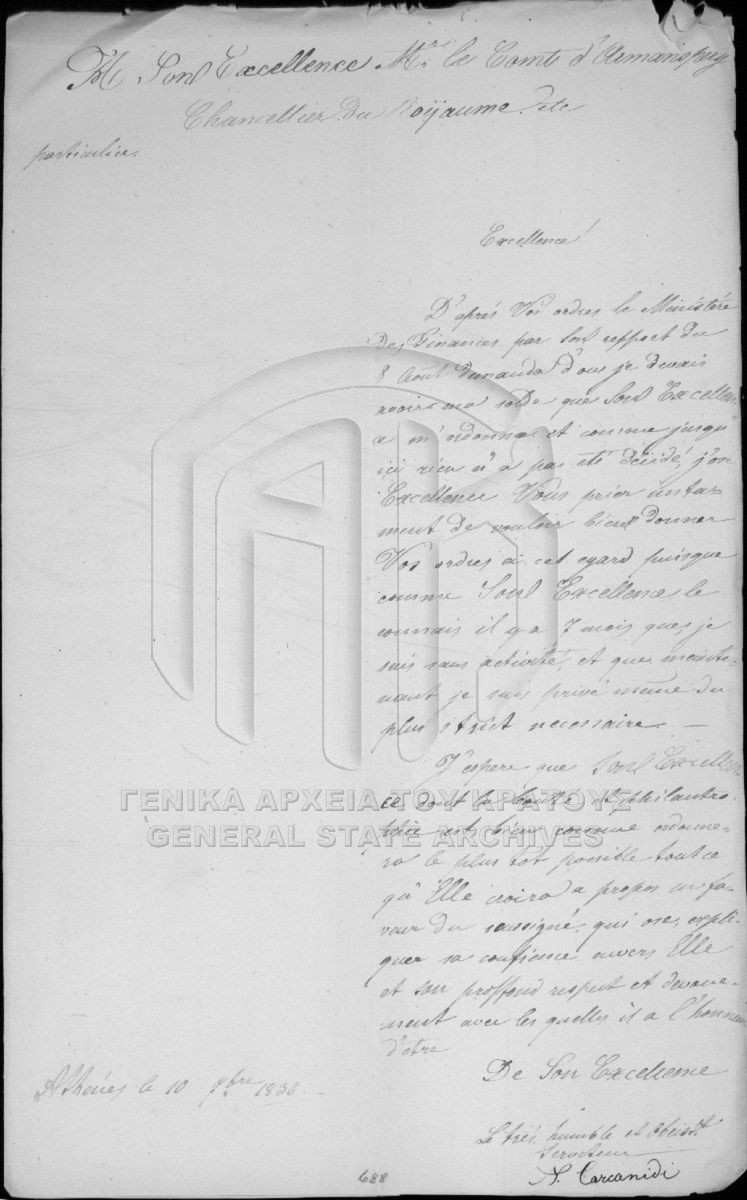 A Son Excellence Mr. le Comte d'Armansperg
Chancellier du Roÿaume etc
particulier.
Excellence!
D'aprés Vos ordres le Ministére
des Finances par son rapport du
8 Août demanda d'ou je devais
avoir ma solde que Son Excellen-
ce m'ordonna et comme jusqu'
ici rien n'a pas eté décidé, j'on
Excellence Vous prier instam-
ment de vouloir bien donner
Vos ordres á cet egard puisque
comme Son Excellence le
connais il y a 7 mois que je
suis sans activité et que mainte-
nant je suis privé même du
plus strict necessaire. —
J'espere que Son Excellen-
ce dont la bonté et philantro-
phie est bien connue ordonne-
ra le plus tôt possible tout ce
qu'Elle croira a propos en fa-
veur du soussigné, qui ose expli-
quer sa confience envers Elle
et son proffond respect et devoue-
ment avec les quelles il a l'honneur
d'etre
De Son Excellence
Athénes le 10 bre 1836
Le trés humble et obeisst
serviteur
N. Carcanidi
688
ΓΕΝΙΚΑ ΑΡΧΕΙΑ ΤΟΥ ΚΡΑΤΟΥΣ
GENERAL STATE ARCHIVES